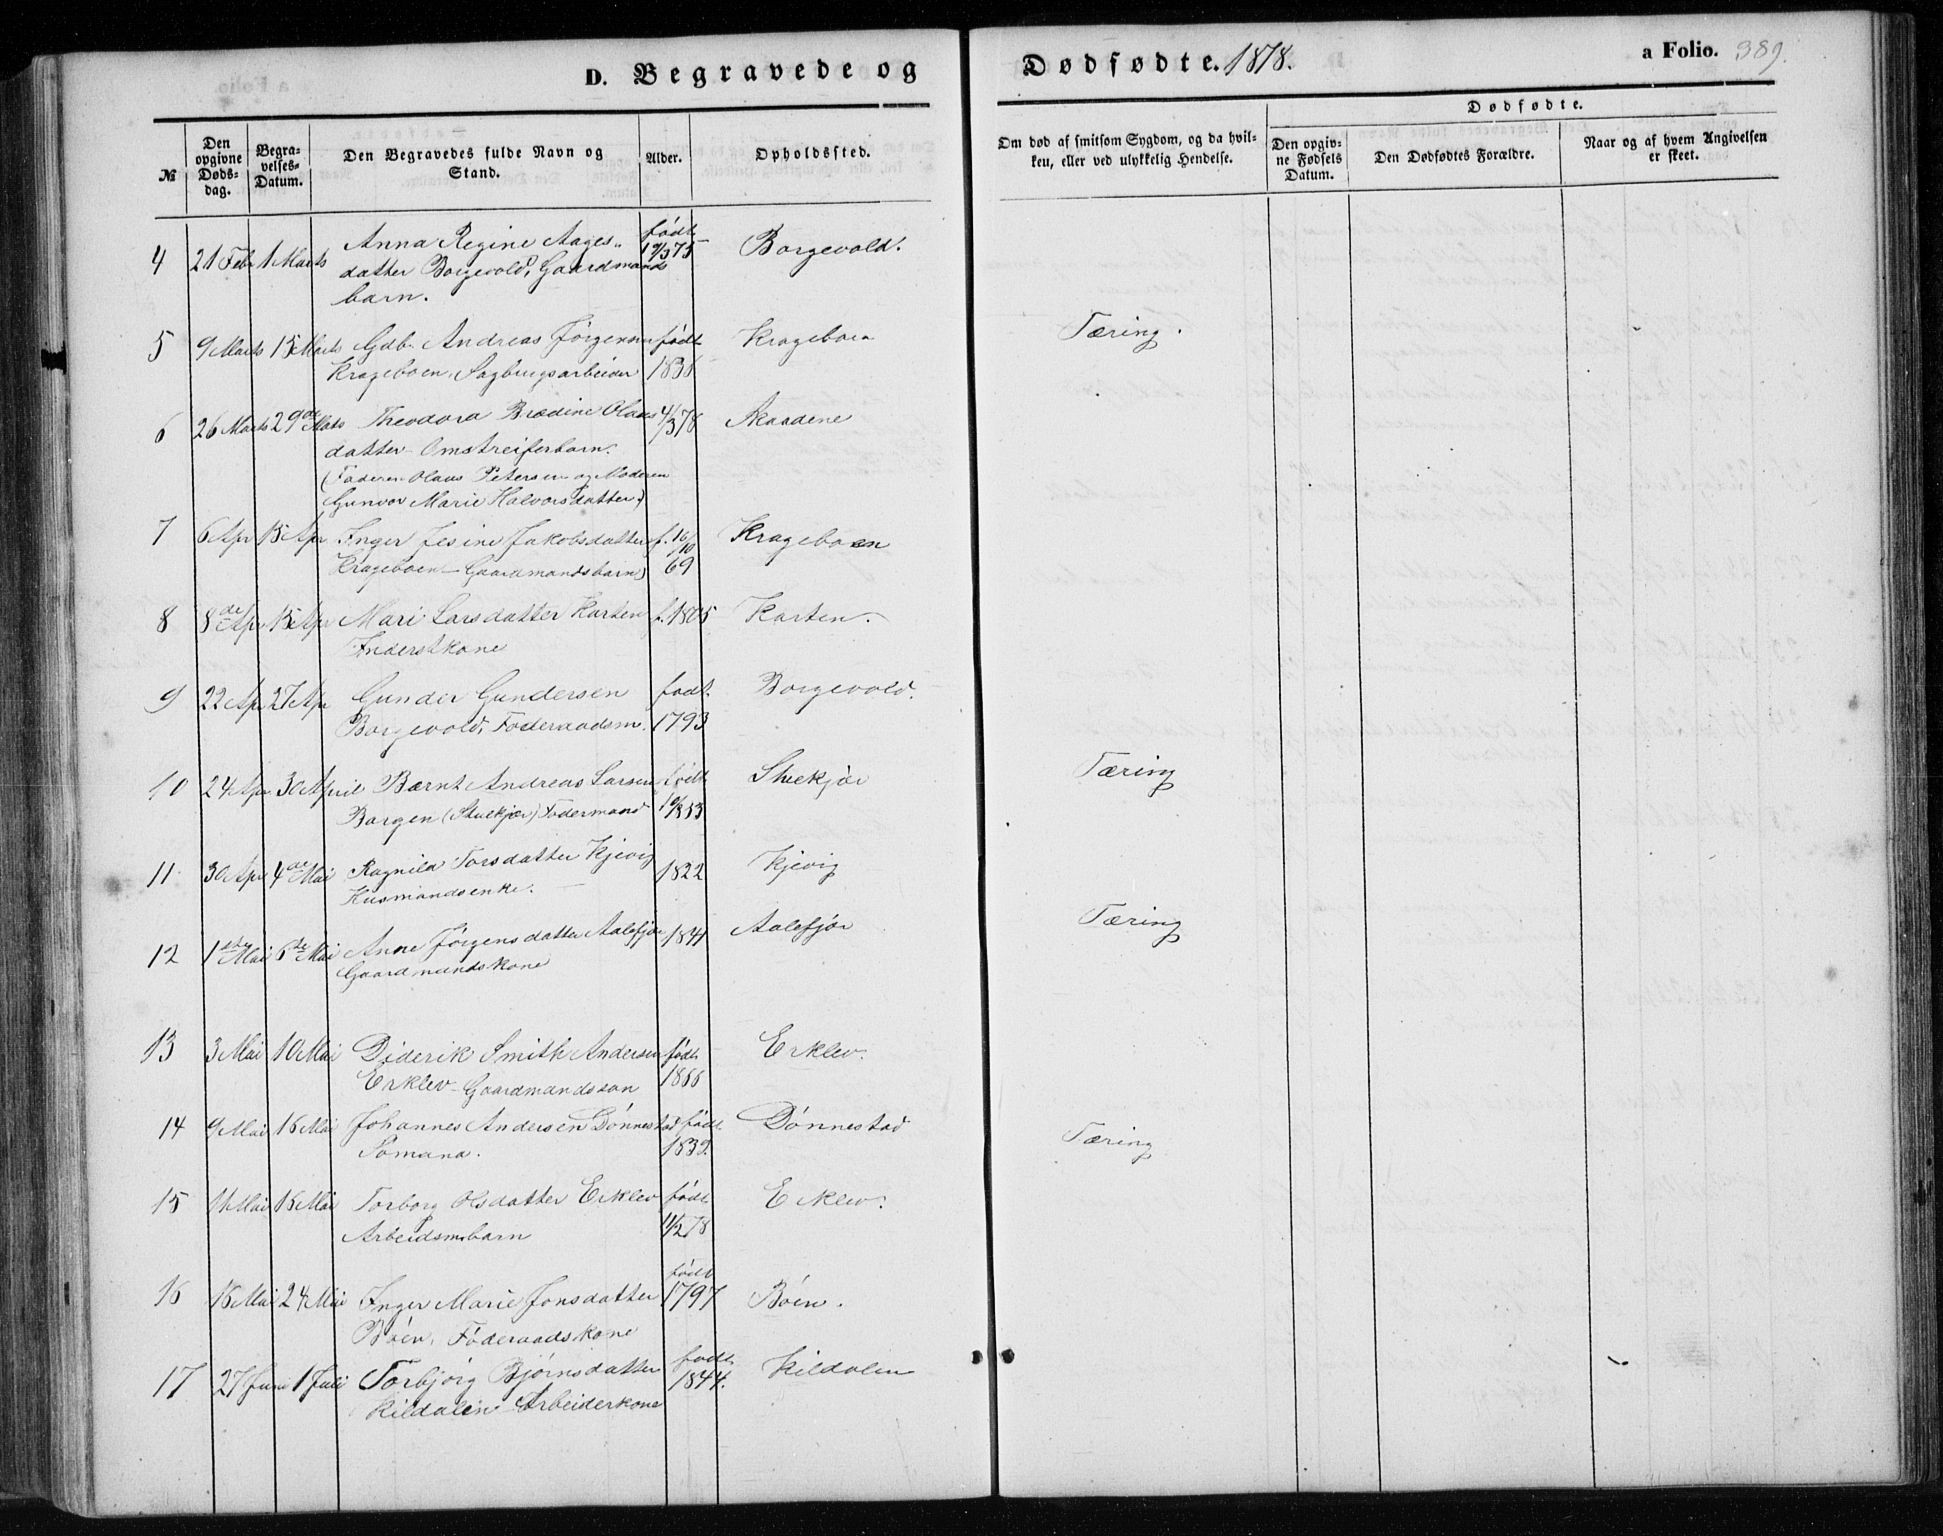 D. Begravede og Dødfødte. 1878. a Folio. 389.
№ Den opgivne Døds-dag. Begra-velses-Datum. Den Begravedes fulde Navn og Stand. Alder. Opholdssted. Om død af smitsom Sygdom, og da hvil-ken, eller ved ulykkelig Hendelse. Dødfødte. Den opgiv-ne Fødsels Datum. Den Dødfødtes Forældre. Naar og af hvem Angivelsen er skeet.
4 21 Feb 1 Marts Anna Regine Aages- født 19/3 75 Borgevold.
datter Borgevold, Gaardmands
barn.
5 9 Marts 15 Marts Gdb. Andreas Jørgensen født Krageboen Tæring.
Krageboen, Sagbrugsarbeider 1836
6 26 Marts 29de Mats Theodora Brædine Olaus 4/3 78 Skaadene
datter - Omstreiferbarn.
(Faderen Olaus Petersen og Moderen
Gunvor Marie Halvorsdatter)
7 6 Apr 15 Apr Inger Jesine Jakobsdatter f. 16/10 Krageboen
Krageboen - Gaardmandsbarn) 69
8 8de Apr 15 Apr Mari Larsdatter Karten f. 1805 Karten.
Inderstkone
9 22 Apr 27 Apr Gunder Gundersen født. Borgevold.
Borgevold, Foderaadsm. 1793
10 24 Apr 30 April Bærnt Andreas Larsen født Stuekjær Tæring
Borgen (Stuekjær) Fodermand
11 30 Apr 4de Mai Ragnild Torsdatter Kjevig 1822 Kjevig
Husmandsenke.
12 1ste Mai 6te Mai Anne Jørgensdatter Aalefjær 1841 Aalefjør Tæring
Gaardmandskone
13 3 Mai 10 Mai Diderik Smith Andersen født Erklev.
Erklev - Gaardmandssøn 1866
14 9 Mai 16 Mai Johannes Andersen Dønnestad født Dønnestad Tæring
Sømand. 1832
15 11 Mai 15 Mai Torborg Olsdatter Erklev født Erklev.
Arbeidsm.barn 11/2 78
16 16 Mai 24 Mai Inger Marie Jonsdatter født 1797 Bøen.
Bøen, Føderaadskone
17 27 Juni 1 Juli Torbjørg Bjørnsdatter født 1844. Kildalen
Kildalen - Arbeiderkone